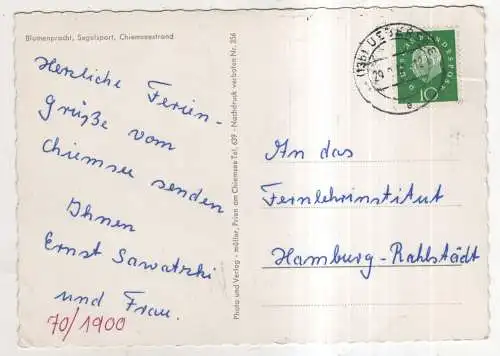 Blumenpracht, Segelsport, Chiemseestrand
Herzliche Ferien-
grüße vom
Chiemsee senden
Ihnen
Ernst Sawatzki
und Frau.
70/1900
Photo und Verlag - müller, Prien am Chiemsee Tel. 639 - Nachdruck verboten Nr. 256
(13b) UEBER
DEUTSCHE BUNDESPOST
10
An das
Fernlehrinstitut
Hamburg-Rahlstädt